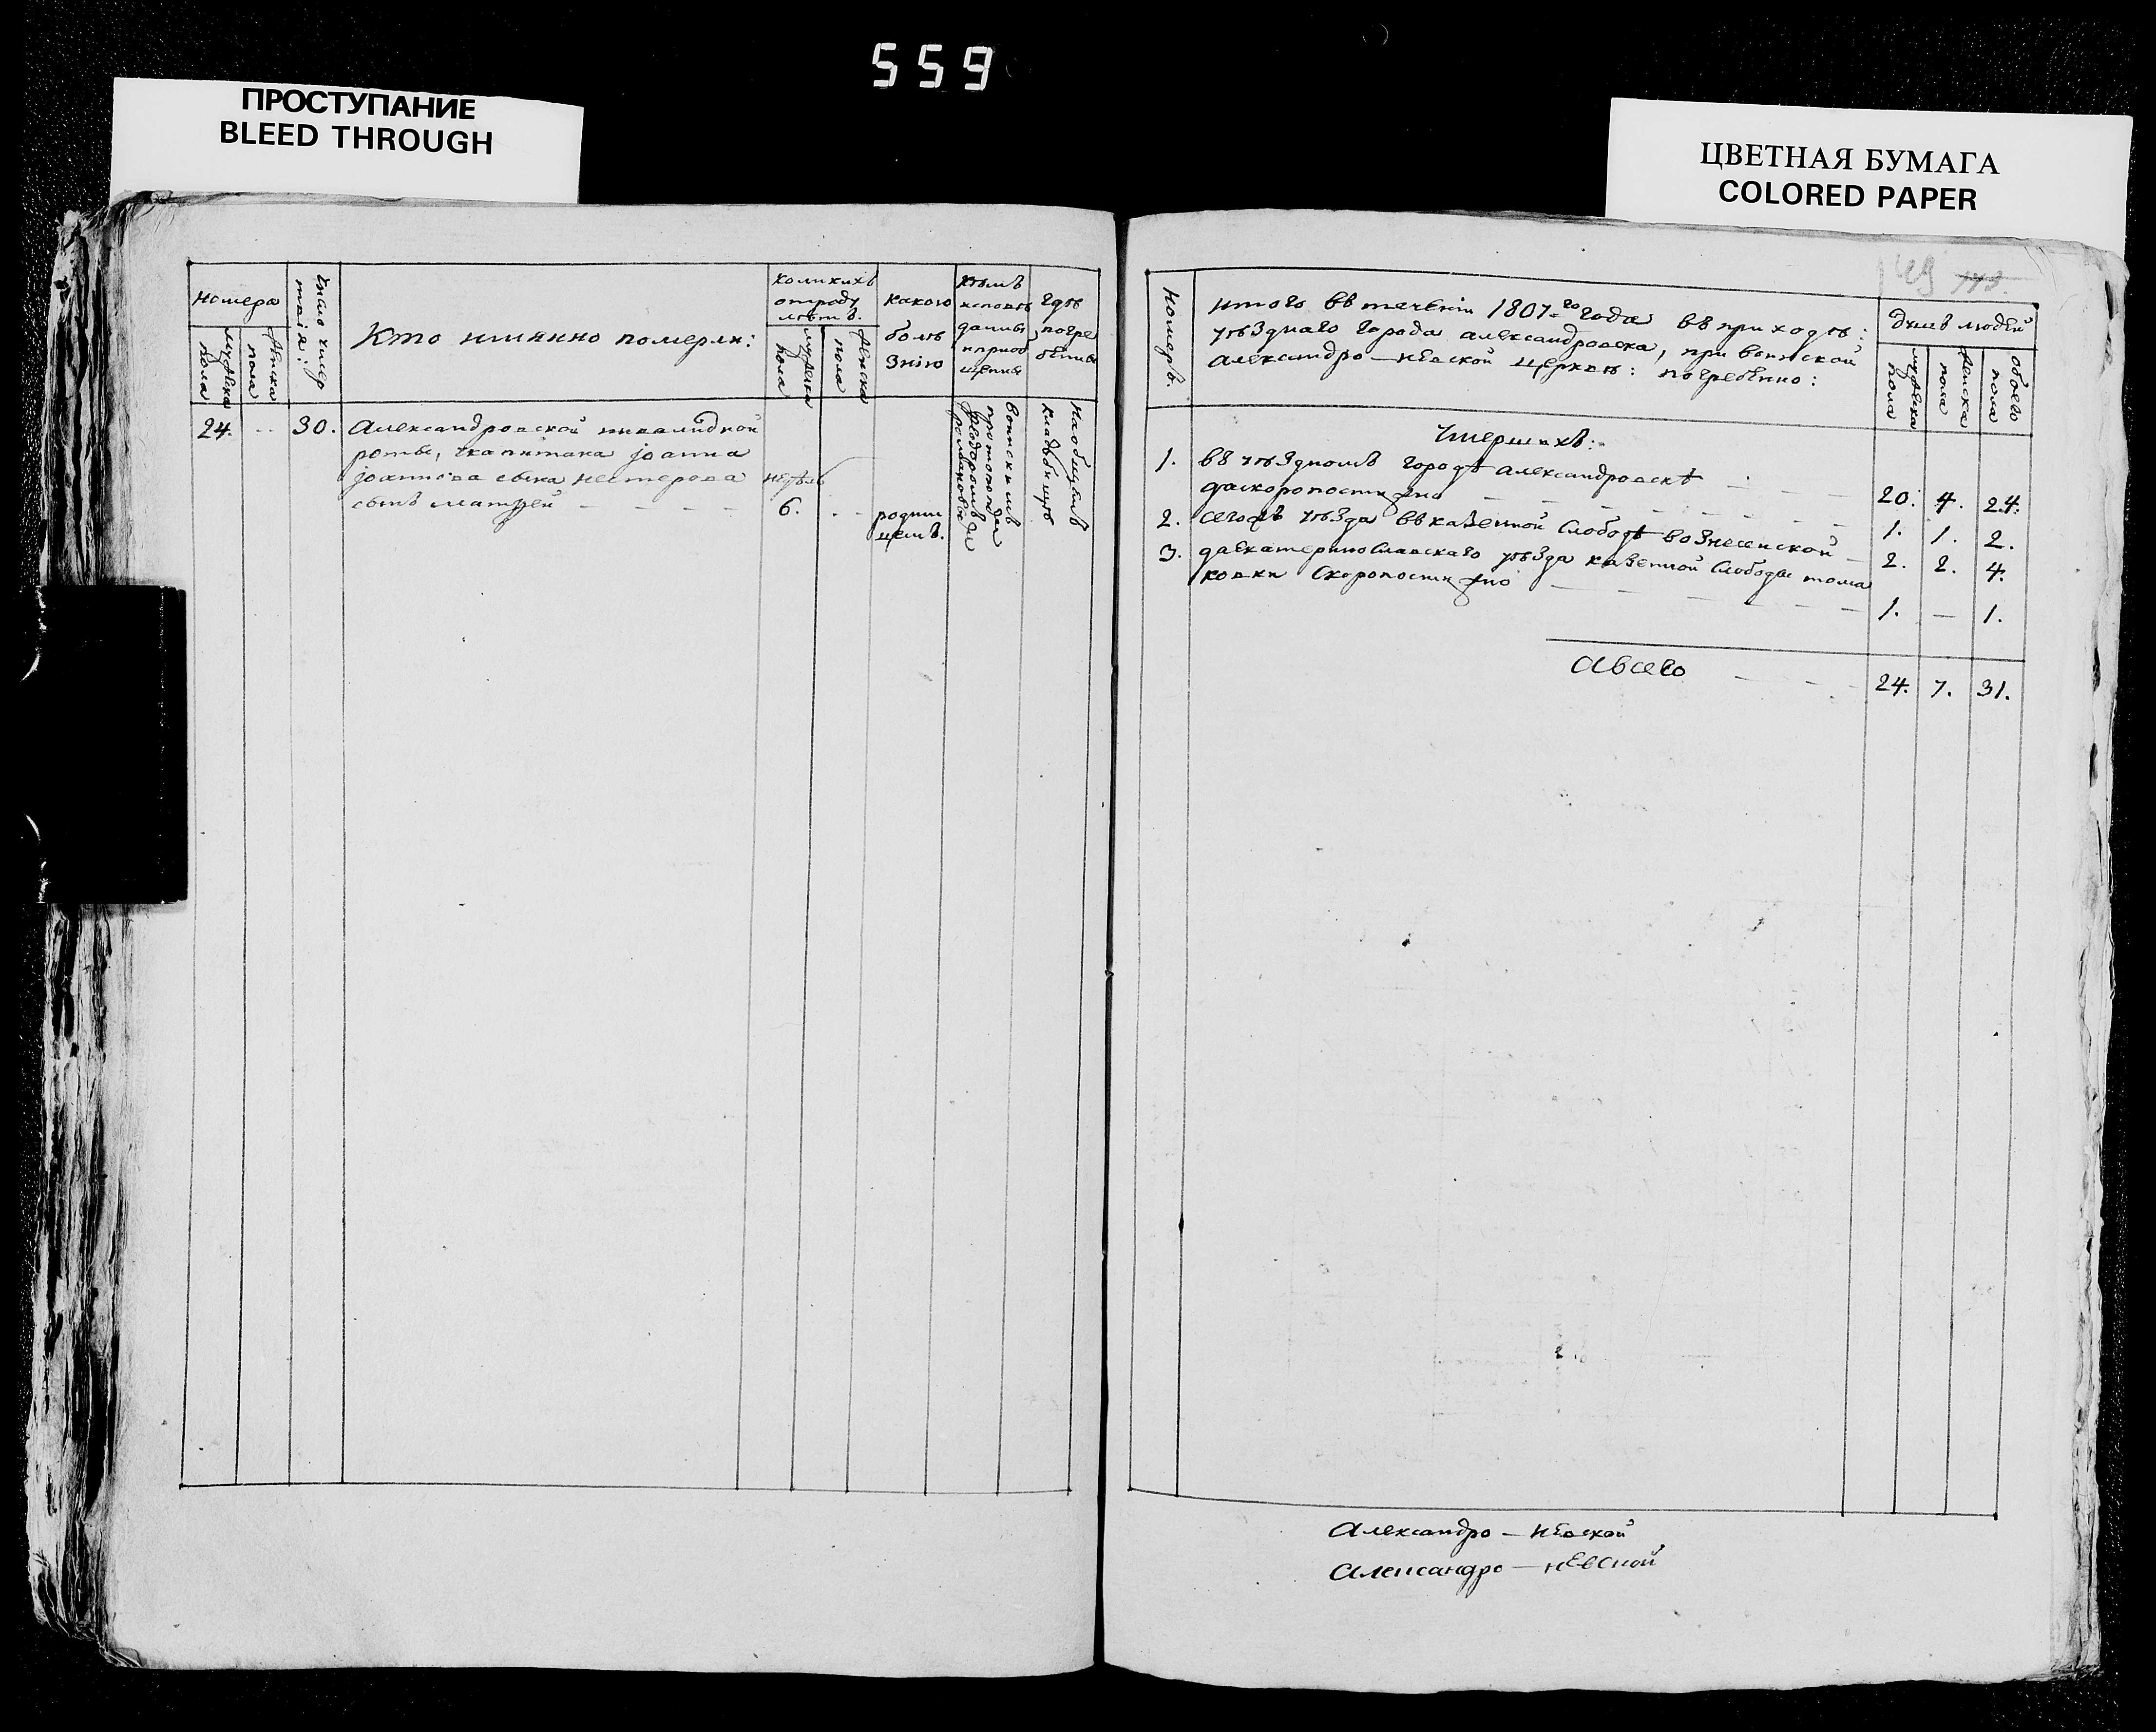 559
ПРОСТУПАНИЕ
BLEED THROUGH
ЦВЕТНАЯ БУМАГА
COLORED PAPER
номера
мужеска
пола
женска
пола
число умер
твія:
Кто имянно померли:
коликихъ
отроду
лѣтъ.
мужеска
пола
женска
пола
какою
болѣ
знію
кѣмъ
исповѣ
даны
и приоб
щены
гдѣ
погре
бены
24. 30. Александровской инвалидной
роты, капитана Іоанна
Іоаннова сына нестерова
сынъ матѳей
недѣль
6.
родим
цемъ.
воинскимъ
протопопом
Феодоромъ
романов
На общемъ
кладбищѣ
49 173.
номеръ.
итого въ теченіи 1807-го года въ приходѣ:
уѣзднаго города александровска, при воинской
александро—невской церквѣ: погребенно:
душъ людей
мужеска
пола
женска
пола
обоего
пола
умершихъ:
1. въ уѣздномъ городѣ александровскѣ 20. 4. 24.
да скоропостижно 1. 1. 2.
2. сегожъ уѣзда въ казенной слободѣ вознесенской 2. 2. 4.
3. да екатеринославскаго уѣзда казенной слободы тома
ковки скоропостижно 1. — 1.
А всего 24. 7. 31.
Александро—невской
Александро—невской